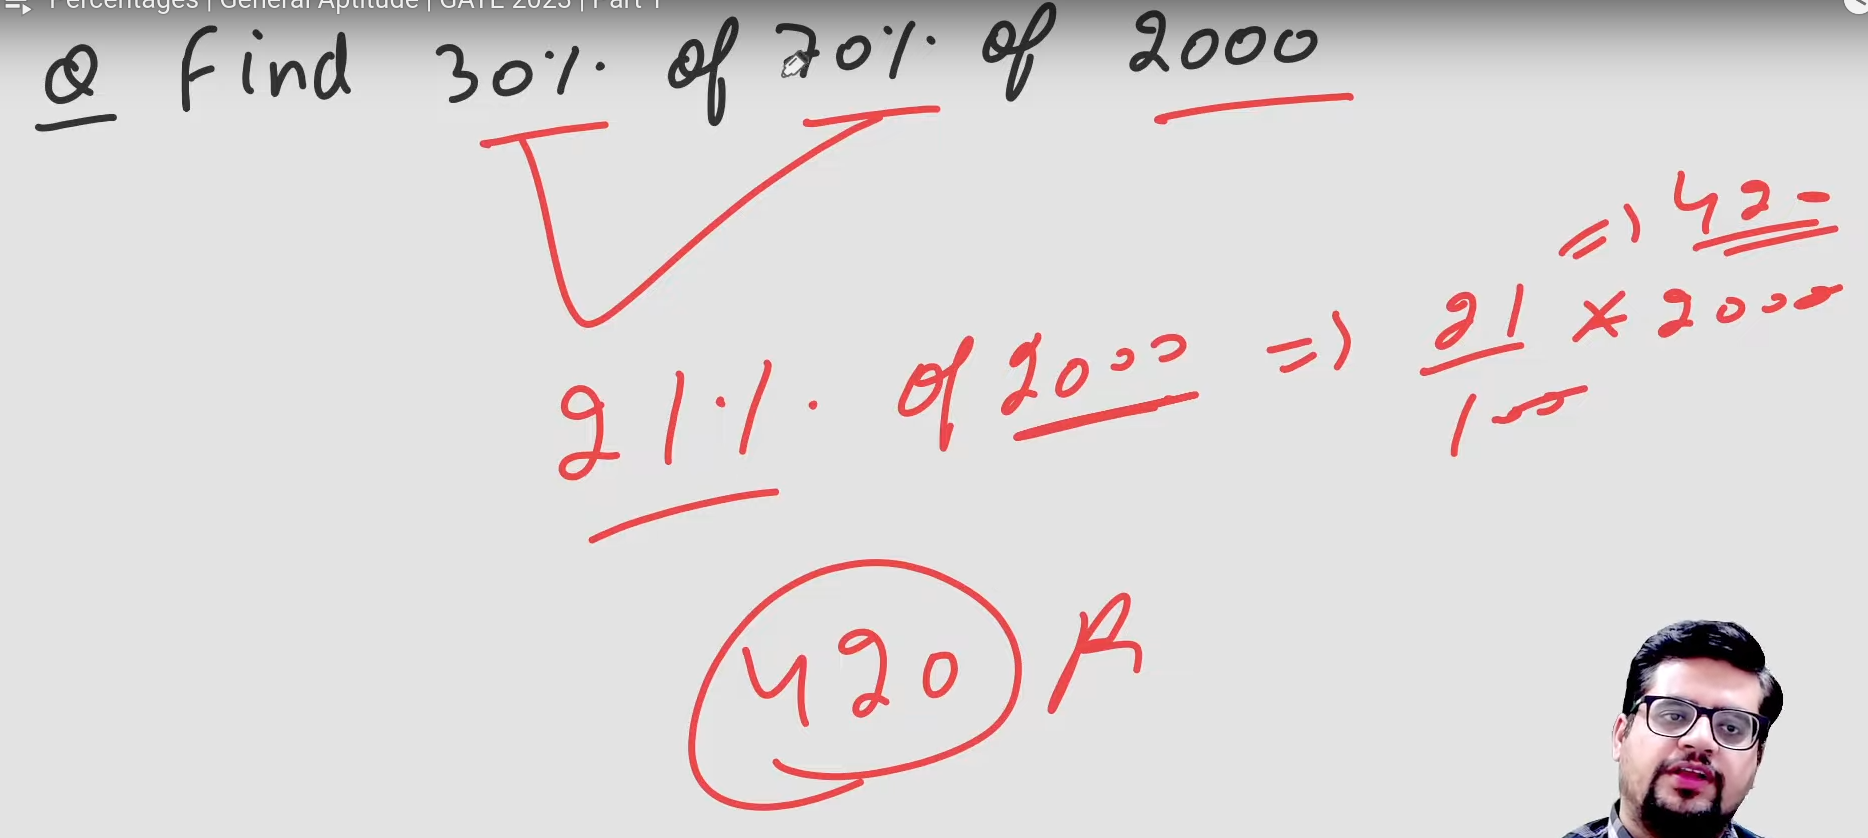 Percentages | General Aptitude | GATE 2023 | Part 1
Q Find 30% of 70% of 2000
=> 420
21% of 2000 => 21/100 * 2000
420 A